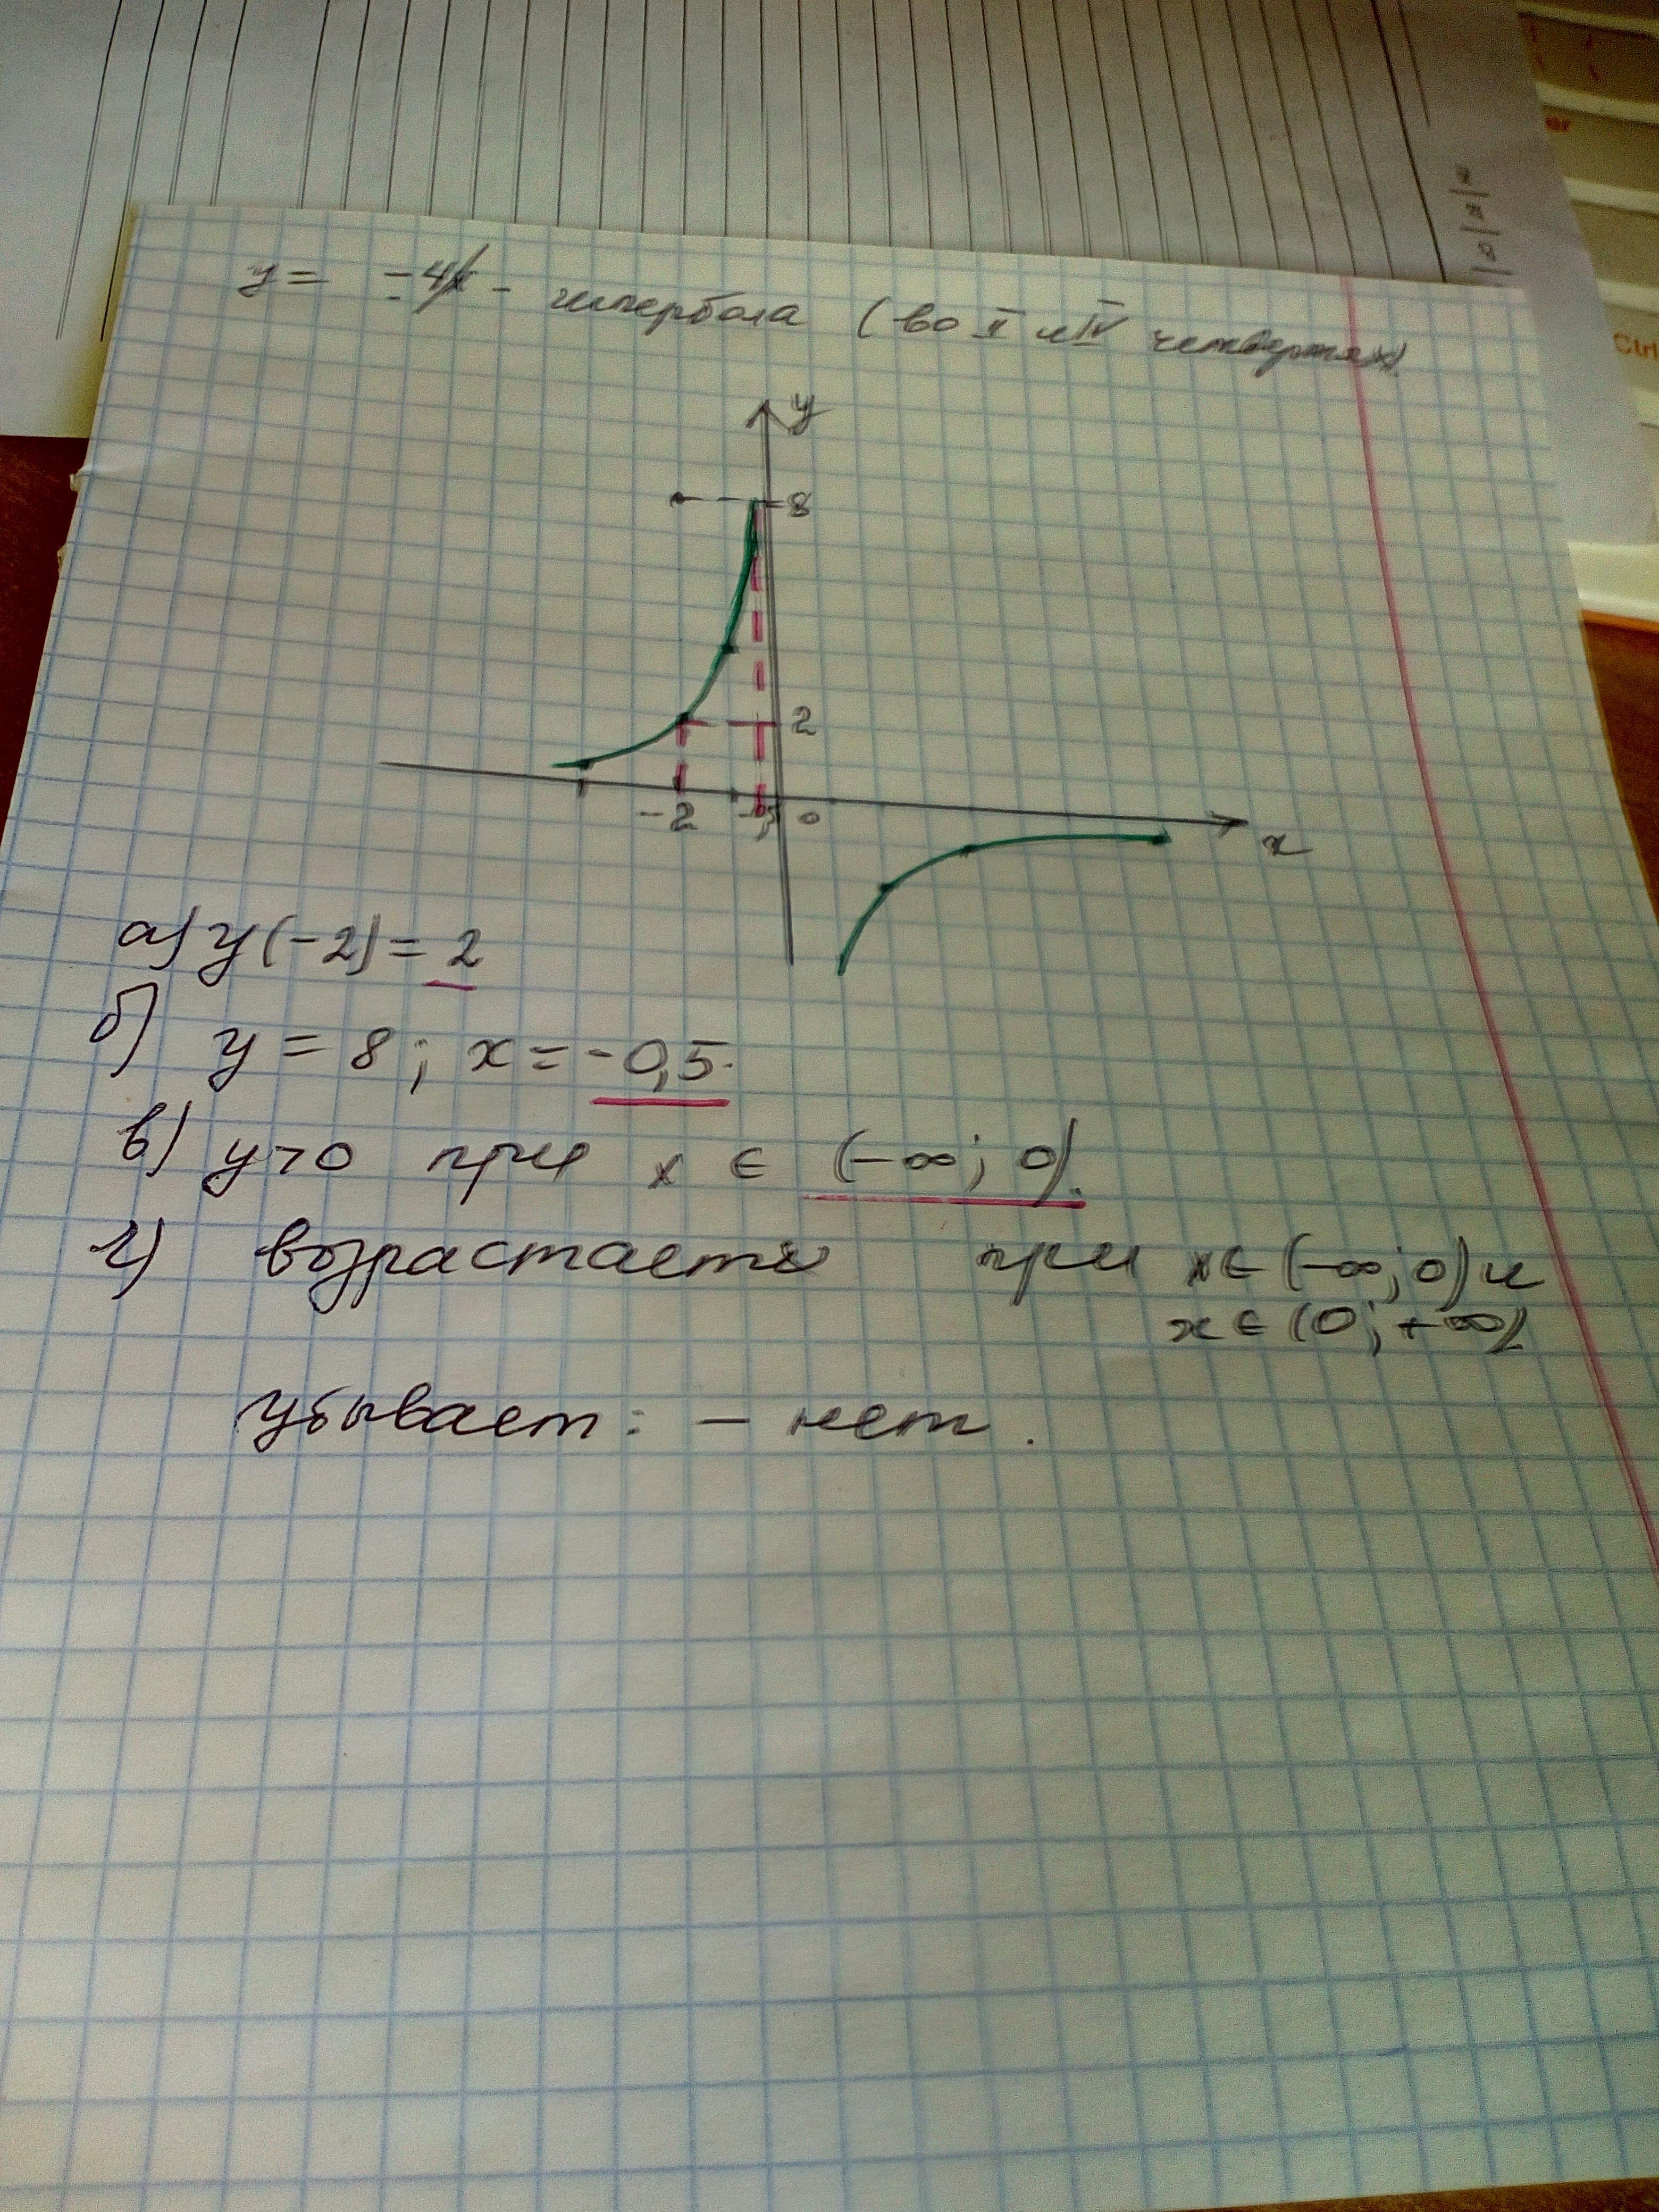 y = -4/x - гипербола (во II и IV четвертях).
y
8
2
-2 -0,5 0
x
а) y(-2) = 2
б) y = 8; x = -0,5.
в) y>0 при x ∈ (-∞; 0).
г) возрастает при x ∈ (-∞; 0) и
x ∈ (0; +∞)
убывает: - нет.
Ctrl